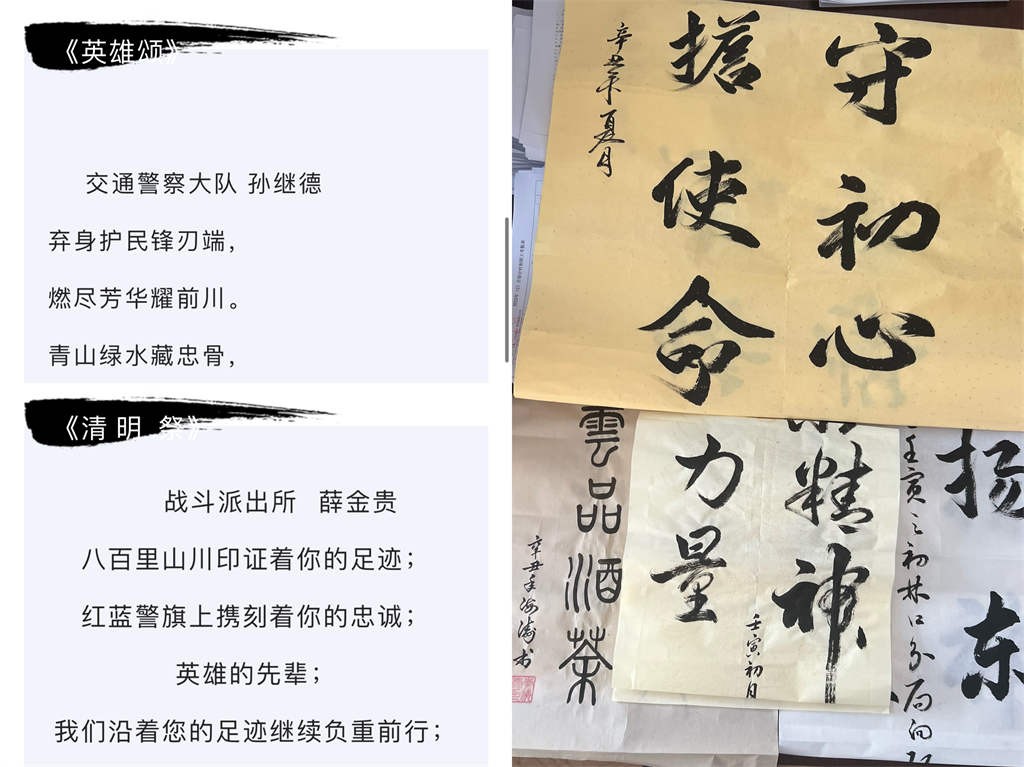 《英雄颂》
交通警察大队 孙继德
弃身护民锋刃端，
燃尽芳华耀前川。
青山绿水藏忠骨，
《清 明 祭》
战斗派出所 薛金贵
八百里山川印证着你的足迹；
红蓝警旗上携刻着你的忠诚；
英雄的先辈；
我们沿着您的足迹继续负重前行；
守初心
擔使命
辛丑年夏月
扬东
壬寅之初林口分局
精神
力量
壬寅初月
雲品酒茶
辛丑年海涛书